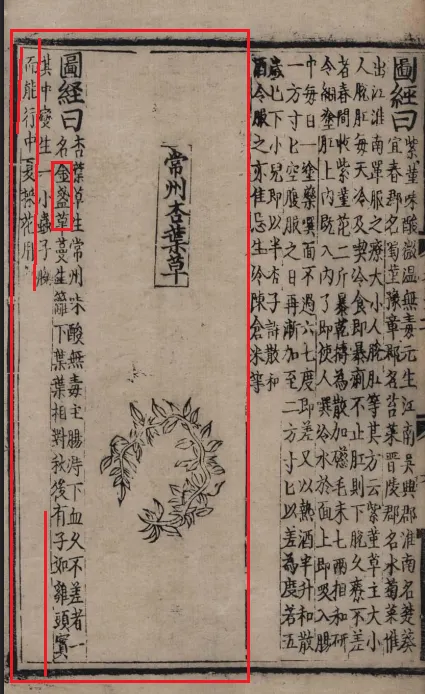 圖經曰
紫菫味酸微溫無毒元生江南吳興郡淮南名楚葵
宜春郡名蜀菫豫章郡名苔菜晉陵郡名水菊菜惟
出江淮南單服之療大小人脫肛等其方云紫菫草主大小
人脫肛每天冷及喫冷食即暴痢不止肛則下脫久療不差
者春間收紫菫花二斤暴乾搗為散加磁毛末七兩相和研
令細塗肛上內既入內了即使人噀冷水於面上即吸入腸
中每日一塗藥噀面不過六七度即差又以熱酒半升和散
一方寸匕空腹服之日再漸加至二方寸匕以差為度若五
歲已下小兒即以半杏子許散和
酒令服之亦佳忌生冷陳倉米等
常州杏葉草
圖經曰
杏葉草生常州味酸無毒主腸痔下血久不差者一
名金盞草蔓生籬下葉葉相對秋後有子如雞頭實
其中變生一小蟲子脫
而能行中夏採花用